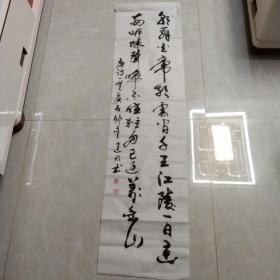 朝辭白帝彩雲間千里江陵一日還
兩岸猿聲啼不住輕舟已過萬重山
唐詩一首